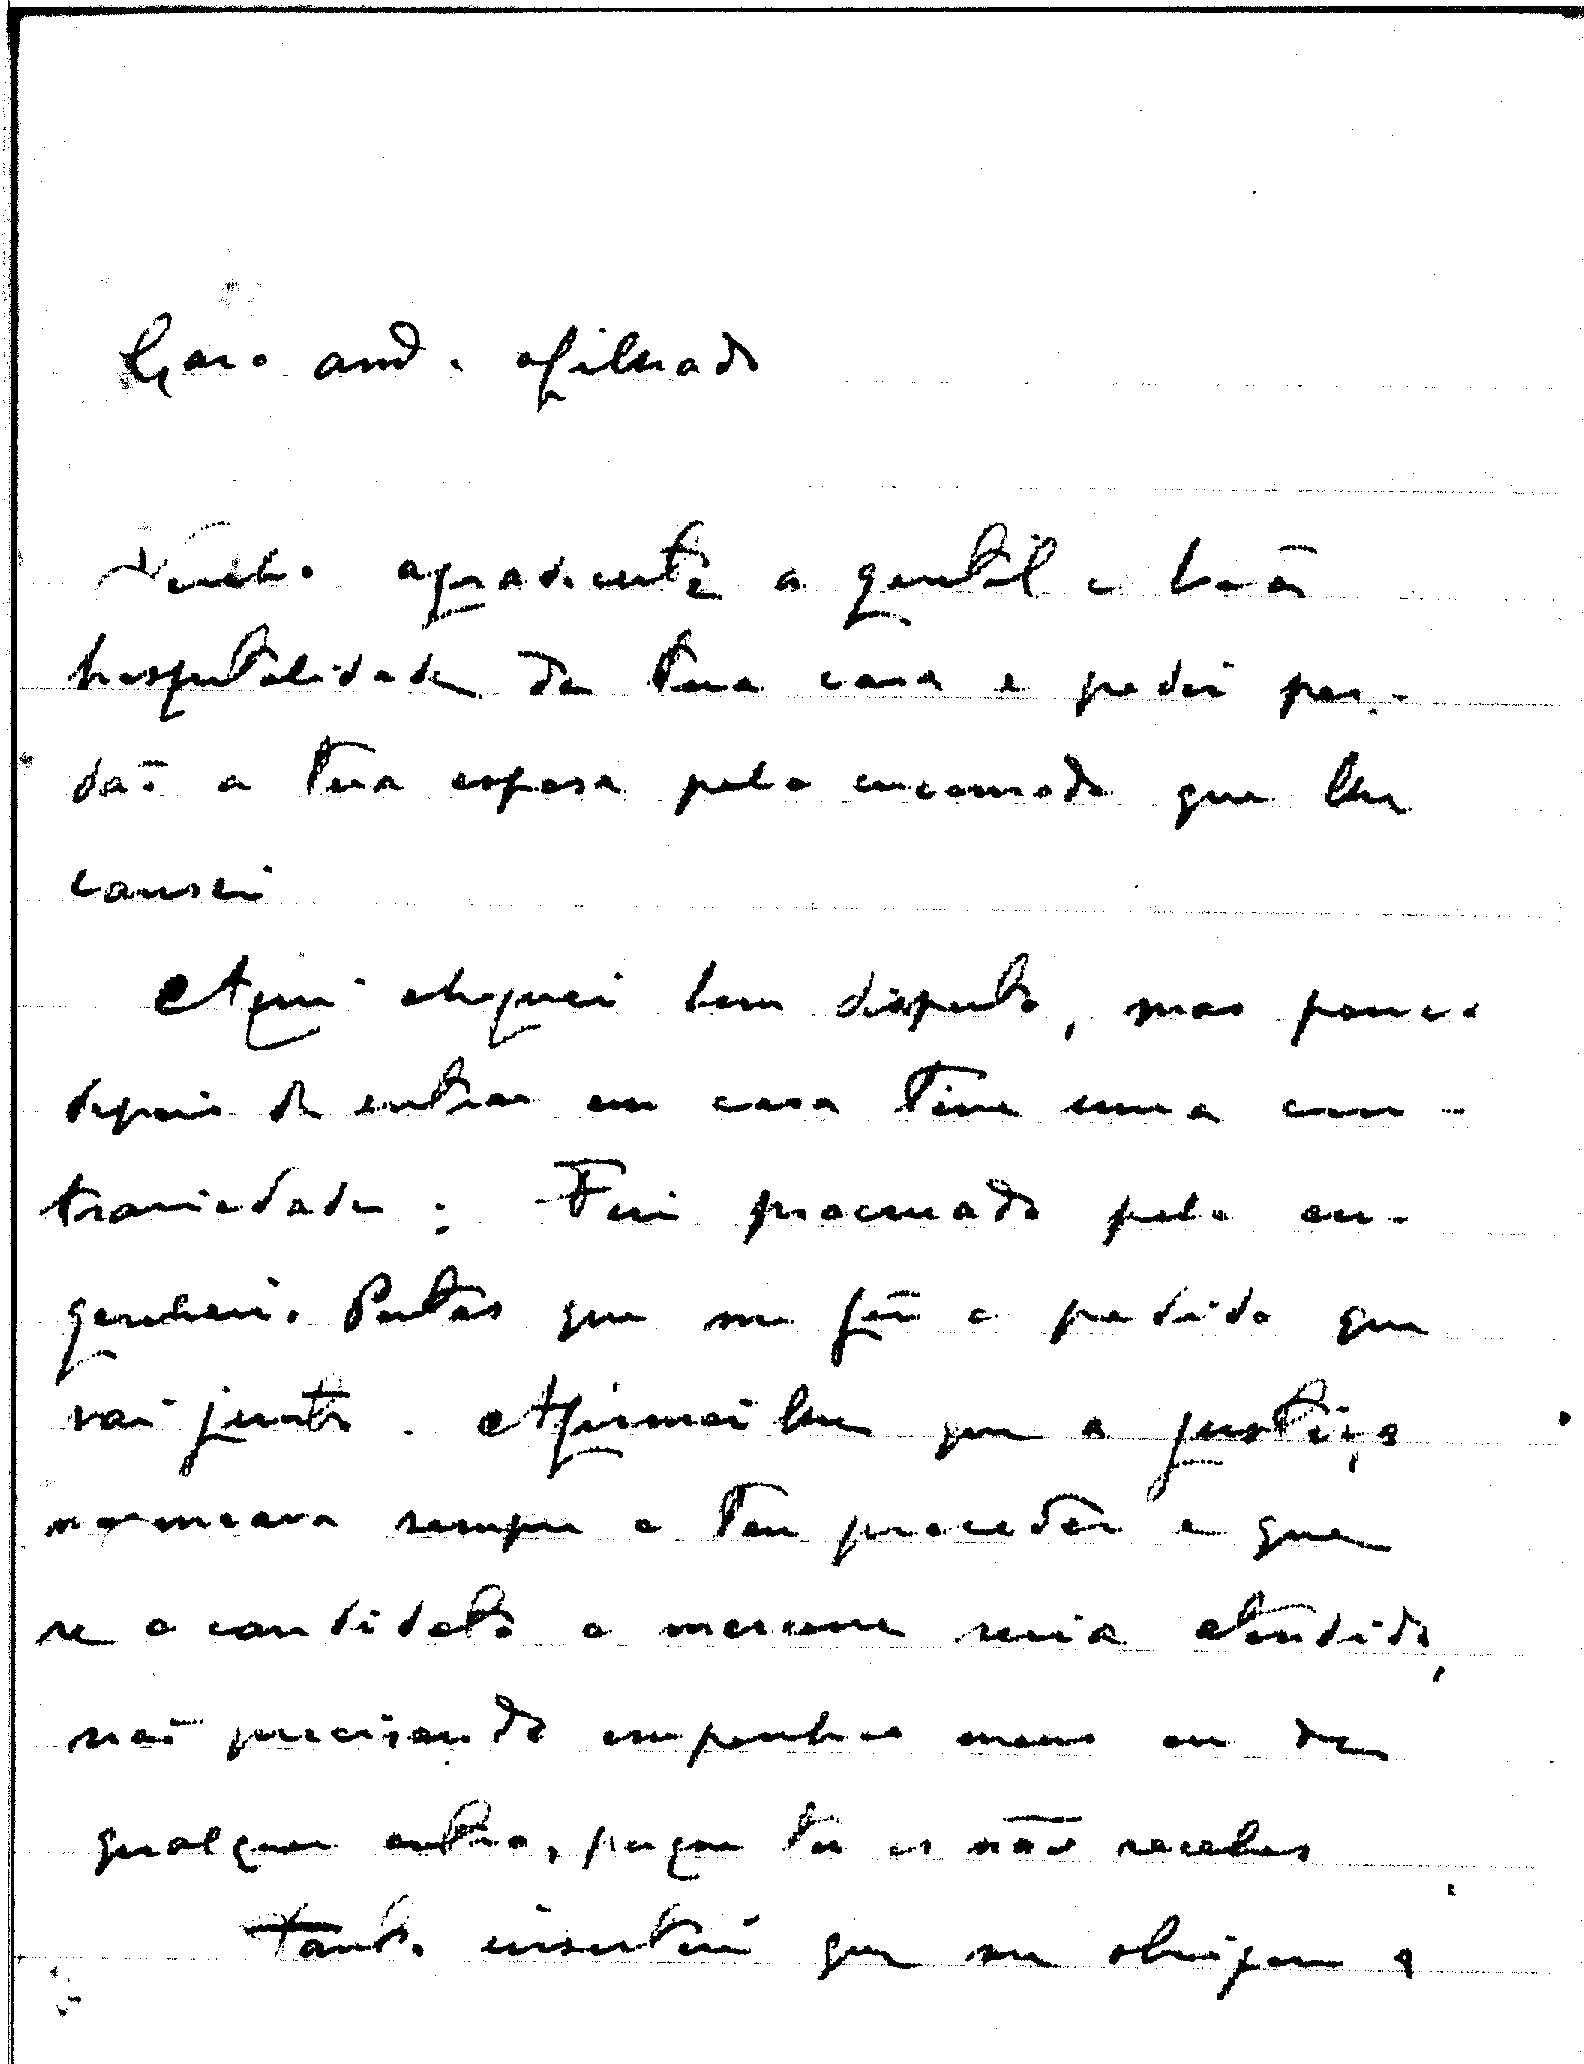 Caro am.º afilhado
Venho agradecer-te a gentil e boa
hospitalidade da tua casa e pedir per-
dão a tua esposa pelo encomodo que lhe
causei
Aqui cheguei bem disposto, mas pouco
depois de entrar em casa tive uma con-
trariedade: Fui procurado pelo en-
genheiro que me fez o pedido que
vai junto. Afirmei lhe que a justiça
norteava sempre o teu proceder e que
se o candidato o merecesse seria atendido,
não precisando empenhos meus ou de
qualquer outro, porque tu os não recebes
Tanto insistiu que me obrigou a